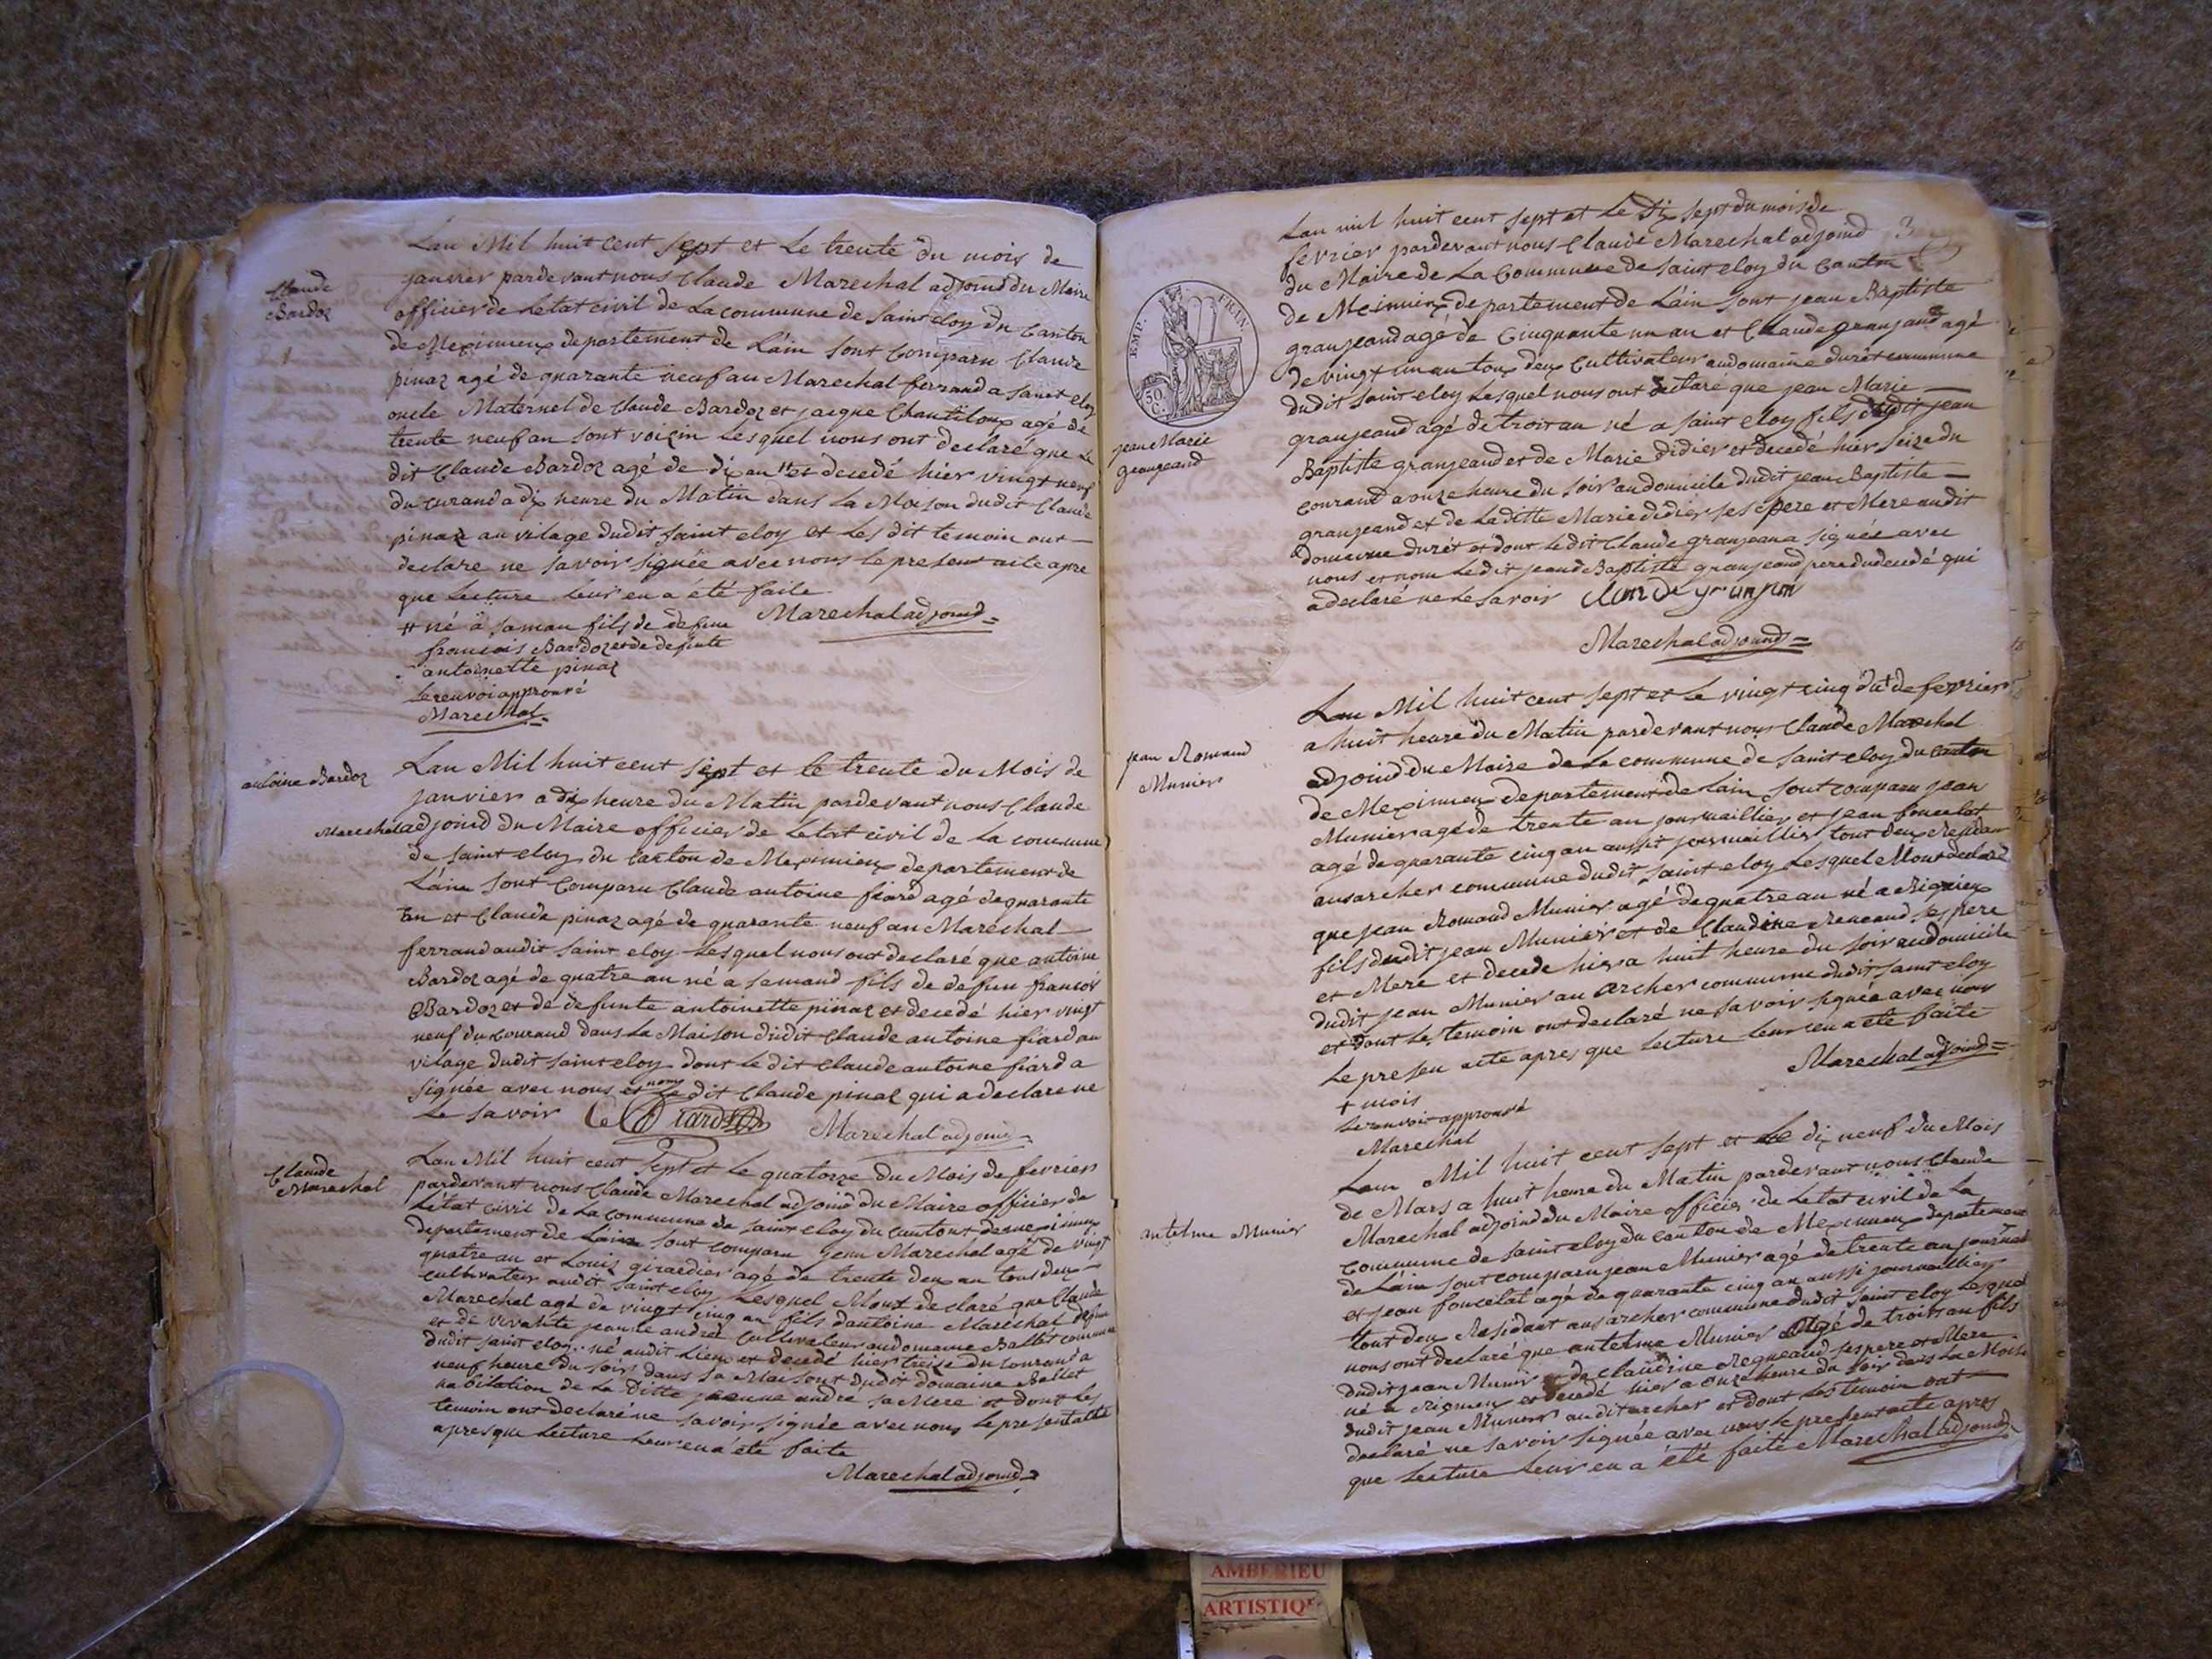 Claude
Bardoz
Lan Mil huit cent sept et Le trente du mois de
janvier pardevant nous Claude Marechal adjoind du Maire
officier de Letat civil de La commune de Saint eloy du Canton
de Meximieux departement de L'ain sont Comparu Claude
pinaz agé de quarante neuf an Marechal ferrand a saint eloy
oncle Maternel de Claude Bardoz et jacque Chantiloup agé de
trente neuf an sont voizin Lesquel nous ont declaré que Le
dit Claude Bardoz agé de dix an # et decedé hier vingt neuf
du curand a dix heure du Matin dans La Maison dudit Claude
pinaz au vilage dudit saint eloy et Les dit temoin ont
declare ne savoir signée avec nous le present acte apre
que Lecture Leur en a été faite
# né a saman fils de defun
francois Bardoz et de defunte
antoinette pinaz
Le renvoi approuvé
Marechal
Marechal adjoind
antoine Bardoz
Lan Mil huit cent sept et le trente du Mois de
janvier a dix heure du Matin pardevant nous Claude
Marechal adjoind du Maire officier de Letat civil de La commune
de saint eloy du Canton de Meximieux departement de
L'ain sont Comparu Claude antoine fiard agé de quarante
an et Claude pinaz agé de quarante neuf an Maréchal
ferrand audit saint eloy Lesquel nous ont declaré que antoine
Bardoz agé de quatre an né a semand fils de defun francois
Bardoz et de defunte antoinette pinaz et decedé hier vingt
neuf du courand dans La Maison dudit Claude antoine fiard au
vilage dudit saint eloy dont Le dit Claude antoine fiard a
signée avec nous et nom Le dit Claude pinaz qui a declare ne
Le savoir
Marechal adjoind
Claude
Marechal
Lan Mil huit cent sept et Le quatorze du Mois de fevrier
pardevant nous Claude Marechal adjoind du Maire officier de
L'état civil de La Commune de saint eloy du canton de meximieux
departement de L'ain sont comparu jean Maréchal agé de vingt
quatre an et Louis girardier agé de trente deux an tous deux
cultivateur audit saint eloy Lesquel Mont declaré que Claude
Marechal agé de vingt cinq an fils dantoine Maréchal defun
et de vivante jeanne andré Cultivateur au domaine Ballet commune
dudit saint eloy né audit Lieu et decedé hier treize du courand a
neuf heure du soir dans sa Maison dudit domaine Ballet
habitation de La ditte jeanne andré sa Mere et dont Les
temoin ont declaré ne savoir signée avec nous Le present acte
apres que Lecture Leur en a été faite
Marechal adjoind
3
Lan mil huit cent sept et Le dix sept du mois de
fevrier pardevant nous Claude Marechal adjoind
du Maire de La Commune de saint eloy du Canton
de Meximieux departement de L'ain sont jean Baptiste
granjeand agé de Cinquante un an et Claude granjand agé
de vingt un an tous deux Cultivateur au domaine durét commune
dudit saint eloy Lesquel nous ont declaré que jean Marie
granjeand agé de trois an né a saint eloy fils dudit jean
Baptiste granjeand et de Marie didier et decedé hier seize du
courand a onze heure du soir au domicile dudit jean Baptiste
granjeand et de Laditte Marie didier ses pere et Mere audit
domaine durét et dont Ledit Claude granjean a signée avec
nous et nom Ledit jeand Baptiste granjeand pere du decedé qui
a declaré ne Le savoir
Marechal adjoind
EMP. FRAN.
50 C.
jean Marie
Grangeand
jean Romand
Munier
Lan Mil huit cent sept et Le vingt cinq du + de fevrier
a huit heure du Matin pardevant nous Claude Marechal
adjoind du Maire de La commune de saint eloy du canton
de Meximieux departement de Lain sont comparu jean
Munier agé de trente an journaillier et jean foncelat
agé de quarante cinq an aussit journaillier tout deux Residan
aus archer commune dudit saint eloy Lesquel Mont declaré
que jean Romand Munier agé de quatre an né a Rignieux
fils dudit jean Munier et de Claudine Reneand ses pere
et Mere et decede hier a huit heure du soir au domicile
dudit jean Munier au archer commune dudit saint eloy
et dont Les temoin ont declaré ne savoir signée avec nous
Le presen acte apres que Lecture Leur en a été faite
+ mois
Le renvoit approuvé
Marechal
Marechal adjoind
antelme Munier
Lan Mil huit cent sept et Le dix neuf du Mois
de Mars a huit heure du Matin pardevant nous Claude
Marechal adjoind du Maire officier de Letat civil de La
commune de saint eloy du canton de Meximieux departement
de L'ain sont comparu jean Munier agé de trente an journal
et jean foncelat agé de quarante cinq an aussi journaillier
tout deux Residant aus archer commune dudit saint eloy Lesquel
nous ont declaré que antelme Munier agé de trois an fils
dudit jean Munier et de Claudine Regneand ses pere et Mere
né a Rigneux et decedé hier a onze heure du soir dans La Maison
dudit jean Munier audit archer et dont Les temoin ont
declaré ne savoir signée avec nous Le present acte apres
que Lecture Leur en a été faite Marechal adjoind
AMBERIEU
ARTISTIQ